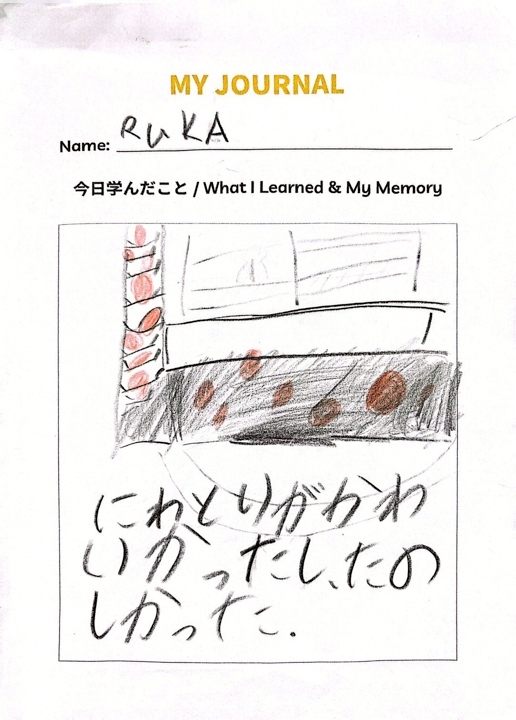 MY JOURNAL
Name: RUKA
今日学んだこと / What I Learned & My Memory
にわとりがかわ
いかったし、たの
しかった.